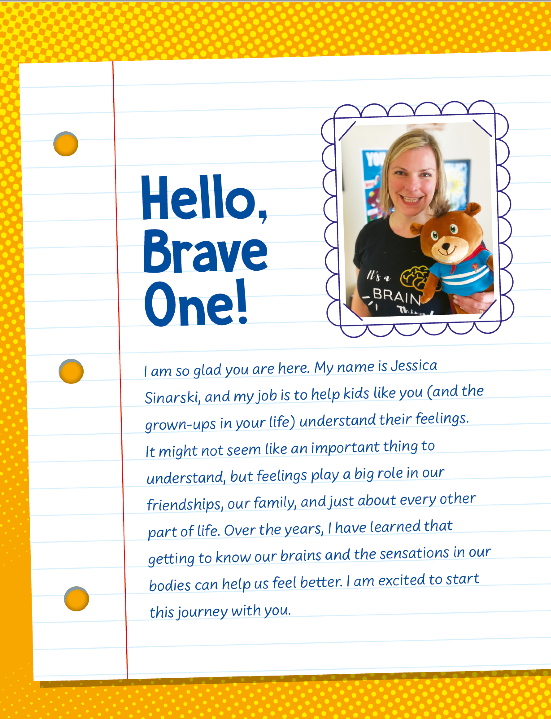 Hello,
Brave
One!
YOU
It's a
BRAIN
Thing
I am so glad you are here. My name is Jessica
Sinarski, and my job is to help kids like you (and the
grown-ups in your life) understand their feelings.
It might not seem like an important thing to
understand, but feelings play a big role in our
friendships, our family, and just about every other
part of life. Over the years, I have learned that
getting to know our brains and the sensations in our
bodies can help us feel better. I am excited to start
this journey with you.